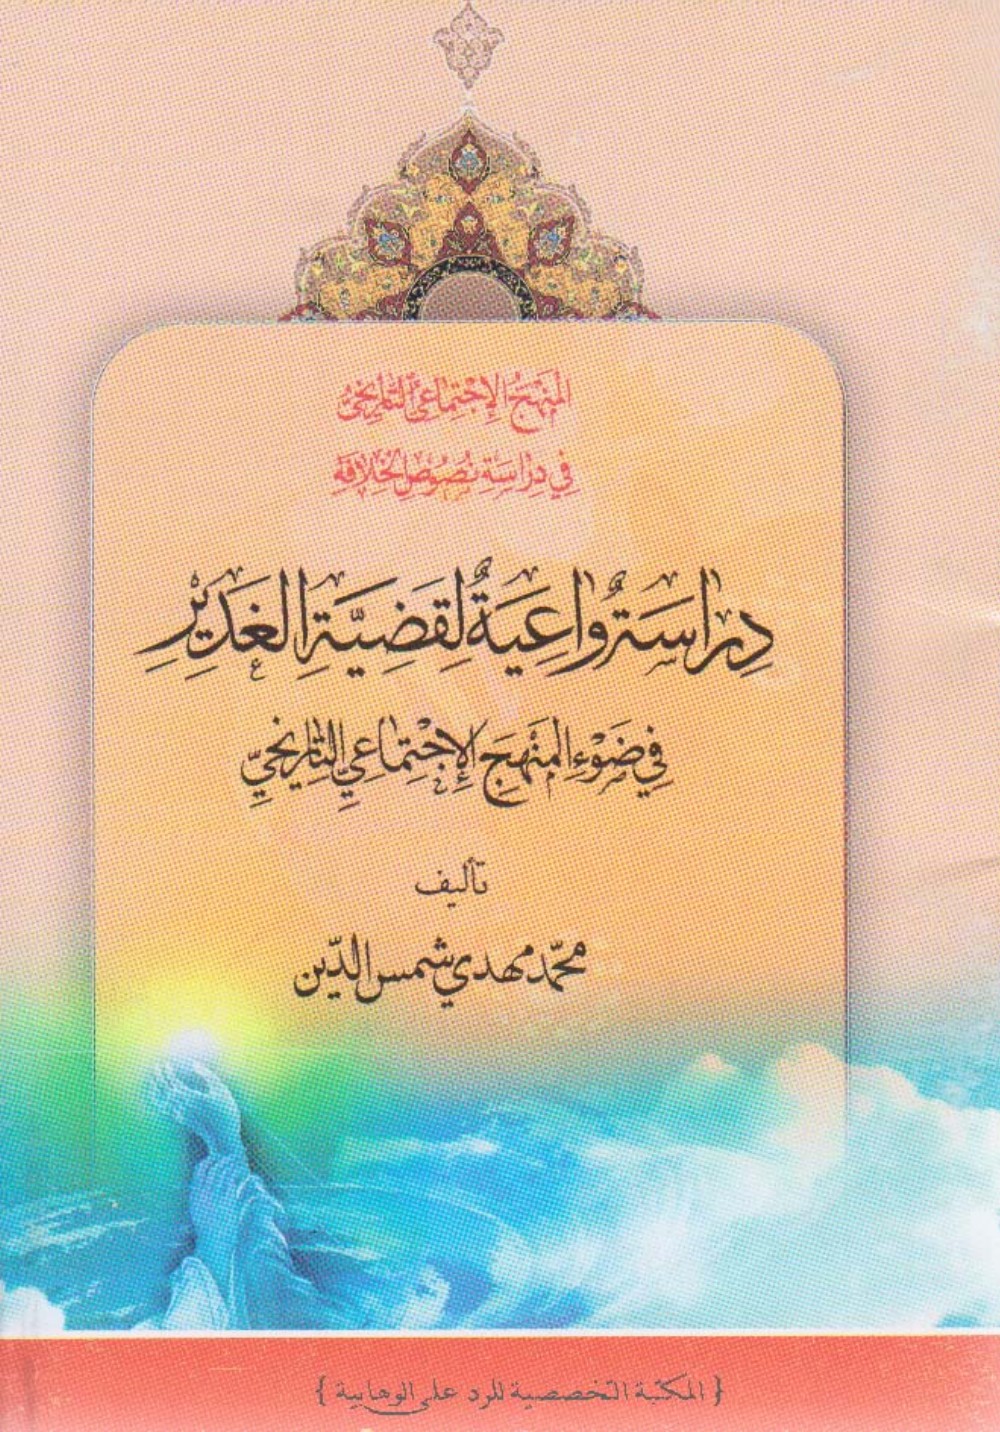 المَنْهَجُ الإِجْتِمَاعِيُّ التَّارِيخِيُّ
فِي دِرَاسَةِ نُصُوصِ الخِلَافَةِ
دِرَاسَةٌ وَاعِيَةٌ لِقَضِيَّةِ الغَدِيرِ
فِي ضَوْءِ المَنْهَجِ الإِجْتِمَاعِيِّ التَّارِيخِيِّ
تأليف
محمّد مهدي شمس الدّين
{ المكتبة التخصصية للرد على الوهابية }